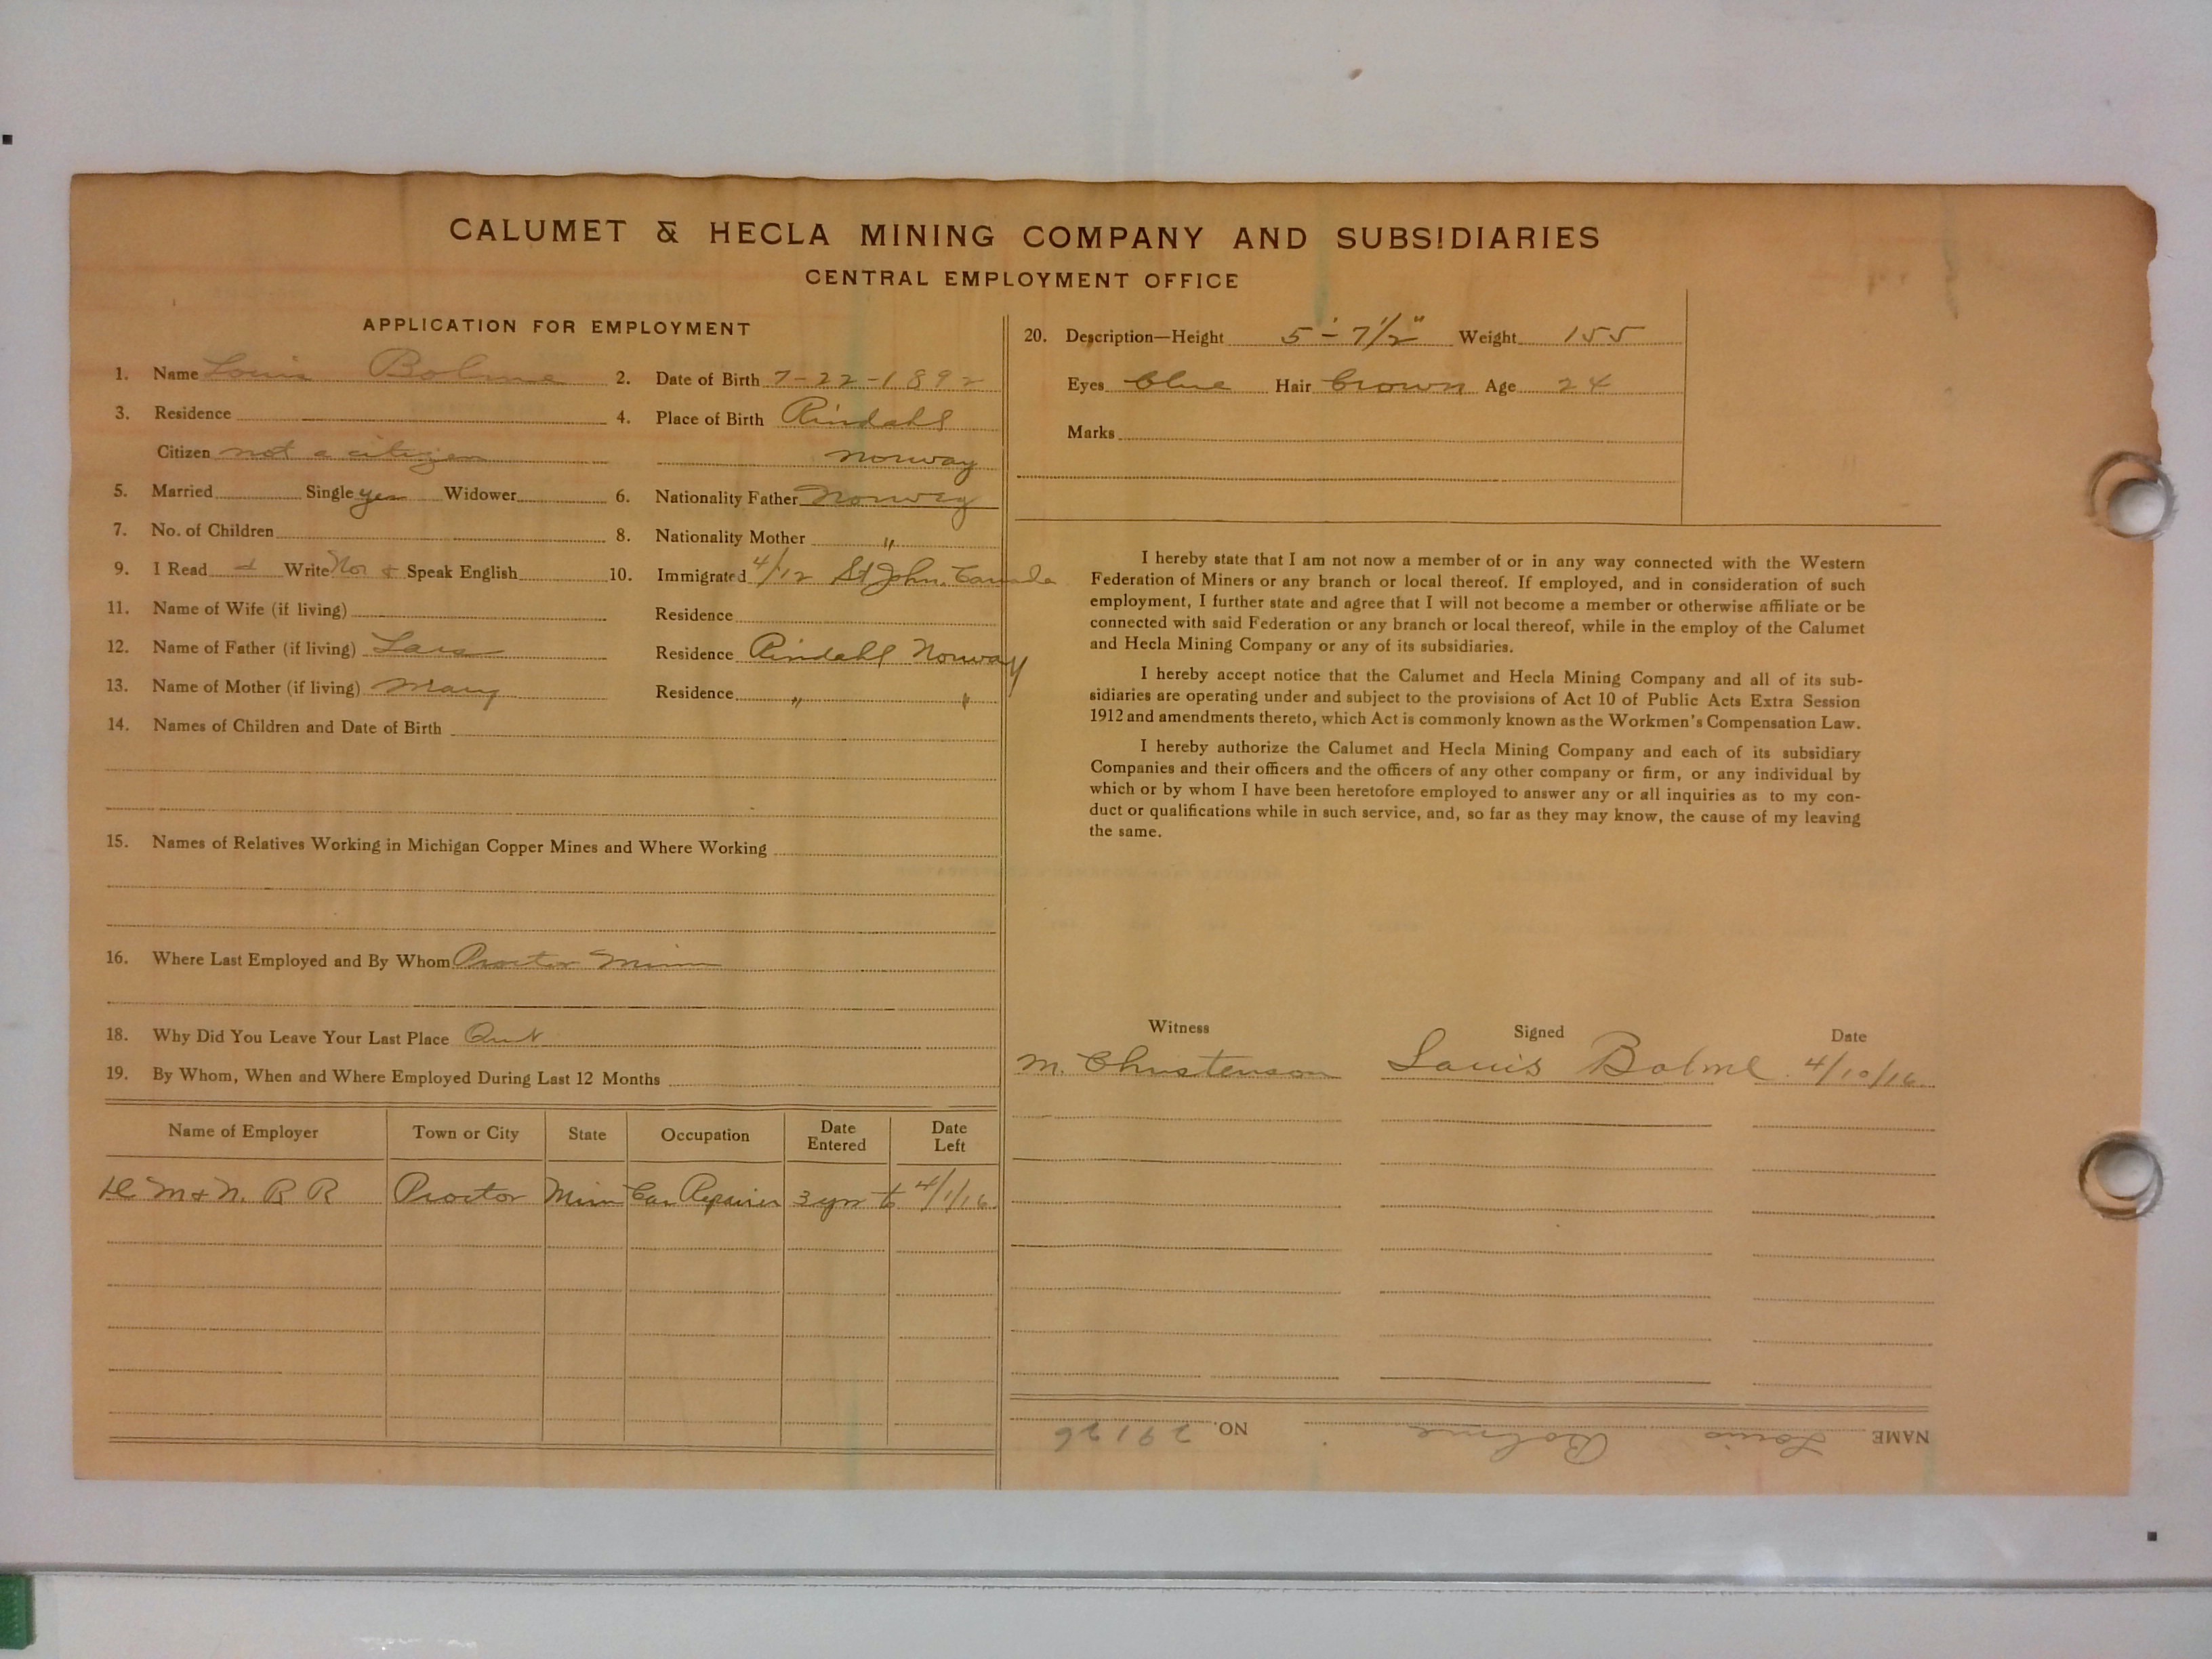 CALUMET & HECLA MINING COMPANY AND SUBSIDIARIES
CENTRAL EMPLOYMENT OFFICE
APPLICATION FOR EMPLOYMENT
1. Name Louis Bolme 2. Date of Birth 7-22-1892
3. Residence 4. Place of Birth Rindahl
Citizen not a citizen Norway
5. Married Single yes Widower 6. Nationality Father Norweg
7. No. of Children 8. Nationality Mother "
9. I Read & Write Nor & Speak English 10. Immigrated 4/12 St John. Canada
11. Name of Wife (if living) Residence
12. Name of Father (if living) Lars Residence Rindahl Norway
13. Name of Mother (if living) Mary Residence " "
14. Names of Children and Date of Birth
15. Names of Relatives Working in Michigan Copper Mines and Where Working
16. Where Last Employed and By Whom Proctor Minn
18. Why Did You Leave Your Last Place Quit
19. By Whom, When and Where Employed During Last 12 Months
Name of Employer Town or City State Occupation Date Entered Date Left
M & N. R R Proctor Minn Car Repairer 3 yrs to 4/1/16
20. Description—Height 5'-7½" Weight 155
Eyes blue Hair brown Age 24
Marks
I hereby state that I am not now a member of or in any way connected with the Western
Federation of Miners or any branch or local thereof. If employed, and in consideration of such
employment, I further state and agree that I will not become a member or otherwise affiliate or be
connected with said Federation or any branch or local thereof, while in the employ of the Calumet
and Hecla Mining Company or any of its subsidiaries.
I hereby accept notice that the Calumet and Hecla Mining Company and all of its sub-
sidiaries are operating under and subject to the provisions of Act 10 of Public Acts Extra Session
1912 and amendments thereto, which Act is commonly known as the Workmen's Compensation Law.
I hereby authorize the Calumet and Hecla Mining Company and each of its subsidiary
Companies and their officers and the officers of any other company or firm, or any individual by
which or by whom I have been heretofore employed to answer any or all inquiries as to my con-
duct or qualifications while in such service, and, so far as they may know, the cause of my leaving
the same.
Witness Signed Date
M. Christenson Louis Bolme 4/10/16
NAME Louis Bolme NO. 29126